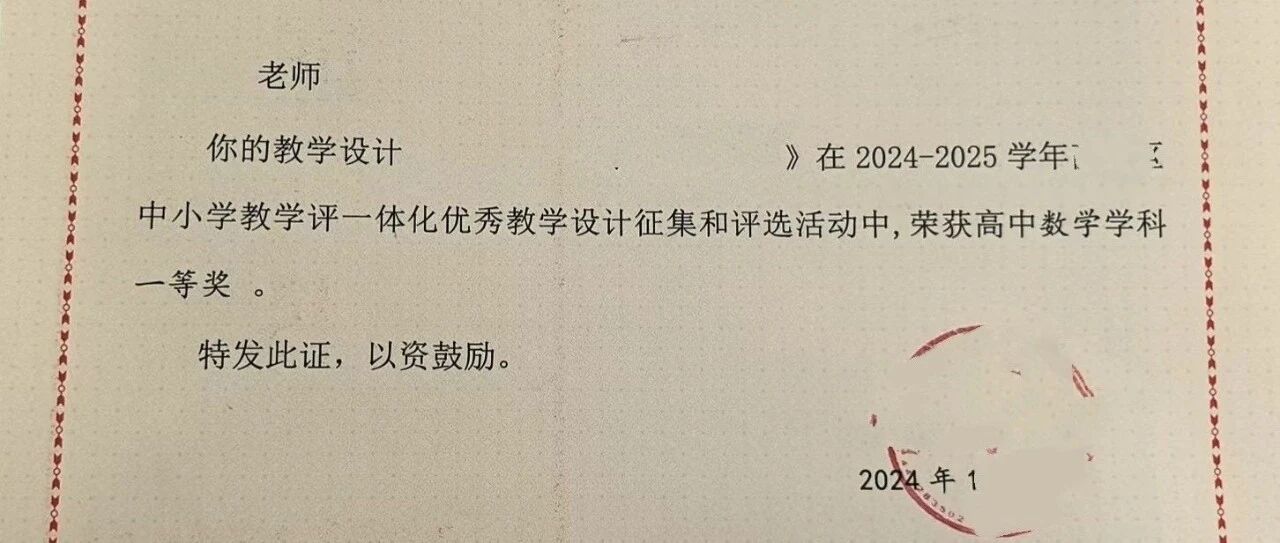 老师
你的教学设计 》在 2024-2025 学年
中小学教学评一体化优秀教学设计征集和评选活动中,荣获高中数学学科
一等奖 。
特发此证，以资鼓励。
2024 年 1